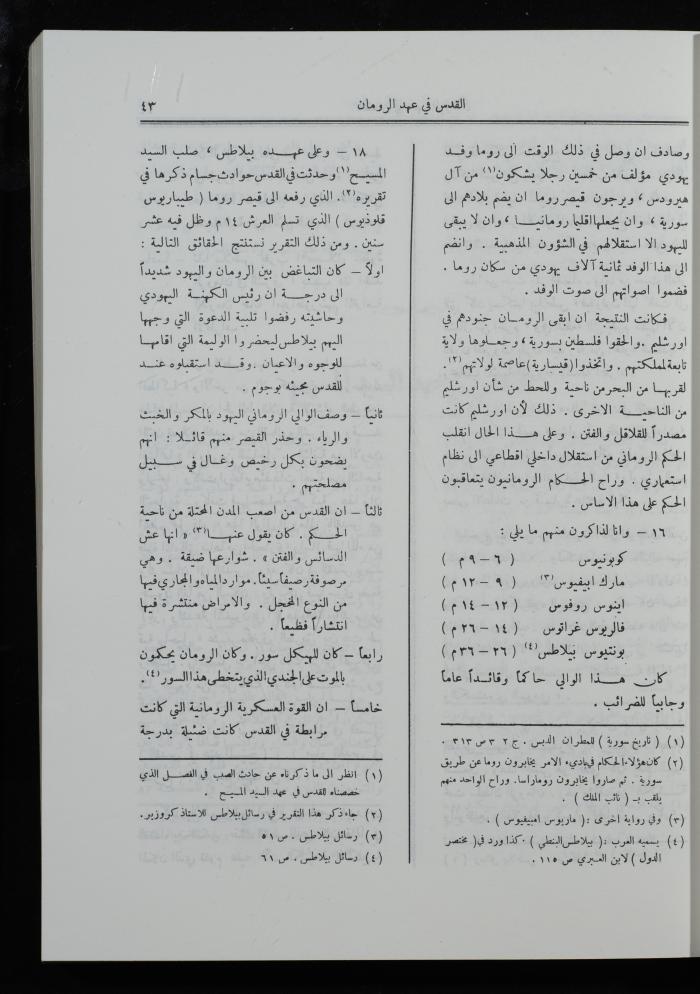 القدس في عهد الرومان
٤٣
وصادف ان وصل في ذلك الوقت الى روما وفد
يهودي مؤلف من خمسين رجلا يشكون(١) من آل
هيرودس ، ويرجون قيصر روما ان يضم بلادهم الى
سورية ، وان يجعلها اقليما رومانيا ، وان لا يبقى
لليهود الا استقلالهم في الشؤون المذهبية . وانضم
الى هذا الوفد ثمانية آلاف يهودي من سكان روما .
فضموا اصواتهم الى صوت الوفد .
فكانت النتيجة ان ابقى الرومان جنودهم في
اورشليم . والحقوا فلسطين بسورية ، وجعلوها ولاية
تابعة لمملكتهم . واتخذوا (قيسارية) عاصمة لولاتهم(٢).
لقربها من البحر من ناحية وللحط من شأن اورشليم
من الناحية الاخرى . ذلك لأن اورشليم كانت
مصدراً للقلاقل والفتن . وعلى هذا الحال انقلب
الحكم الروماني من استقلال داخلي اقطاعي الى نظام
استعماري . وراح الحكام الرومانيون يتعاقبون
الحكم على هذا الاساس .
١٦ – وانا لذاكرون منهم ما يلي :
كوبونيوس ( ٦ – ٩ م )
مارك ابيفيوس(٣) ( ٩ – ١٢ م )
اينوس روفوس ( ١٢ – ١٤ م )
فالريوس غراتوس ( ١٤ – ٢٦ م )
بونتيوس بيلاطس(٤) ( ٢٦ – ٣٦ م )
كان هذا الوالي حاكماً وقائداً عاماً
وجابياً للضرائب .
(١) ( تاريخ سورية ) للمطران الدبس . ج ٢ ٣ ص ٣١٣ .
(٢) كان هؤلاء الحكام في باديء الامر يخابرون روما عن طريق
سورية . ثم صاروا يخابرون روما راساً. وراح الواحد منهم
يلقب بـ ( نائب الملك ) .
(٣) وفي رواية اخرى : ( ماريوس امبيفيوس ) .
(٤) يسميه العرب : ( بيلاطس البنطي ) . كذا ورد في ( مختصر
الدول ) لابن العبري ص ١١٥ .
١٨ – وعلى عهده بيلاطس ، صلب السيد
المسيح(١) وحدثت في القدس حوادث جسام ذكرها في
تقريره(٢). الذي رفعه الى قيصر روما ( طيباريوس
قلوذيوس ) الذي تسلم العرش ١٤ م وظل فيه عشر
سنين . ومن ذلك التقرير نستنتج الحقائق التالية :
اولاً – كان التباغض بين الرومان واليهود شديداً
الى درجة ان رئيس الكهنة اليهودي
وحاشيته رفضوا تلبية الدعوة التي وجهها
اليهم بيلاطس ليحضروا الوليمة التي اقامها
للوجوه والاعيان . وقد استقبلوه عند
للقدس مجيئه بوجوم .
ثانياً – وصف الوالي الروماني اليهود بالمكر والخبث
والرياء . وحذر القيصر منهم قائلا : انهم
يضحون بكل رخيص وغال في سبيل
مصلحتهم .
ثالثاً – ان القدس من اصعب المدن المحتلة من ناحية
الحكم . كان يقول عنها(٣) « انها عش
الدسائس والفتن » . شوارعها ضيقة . وهي
مرصوفة رصيفاً سيئاً. موارد المياه والمجاري فيها
من النوع المخجل . والامراض منتشرة فيها
انتشاراً فظيعاً .
رابعاً – كان للهيكل سور . وكان الرومان يحكمون
بالموت على الجندي الذي يتخطى هذا السور(٤).
خامساً – ان القوة العسكرية الرومانية التي كانت
مرابطة في القدس كانت ضئيلة بدرجة
(١) انظر الى ما ذكرناه عن حادث الصلب في الفصل الذي
خصصناه للقدس في عهد السيد المسيح .
(٢) جاء ذكر هذا التقرير في رسائل بيلاطس للاستاذ كروزير.
(٣) رسائل بيلاطس . ص ٥١
(٤) رسائل بيلاطس . ص ٦١